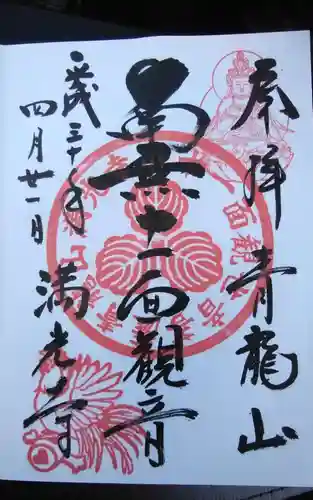 奉拝 青龍山
南無十一面観音
平成三十年
四月廿一日
満光寺